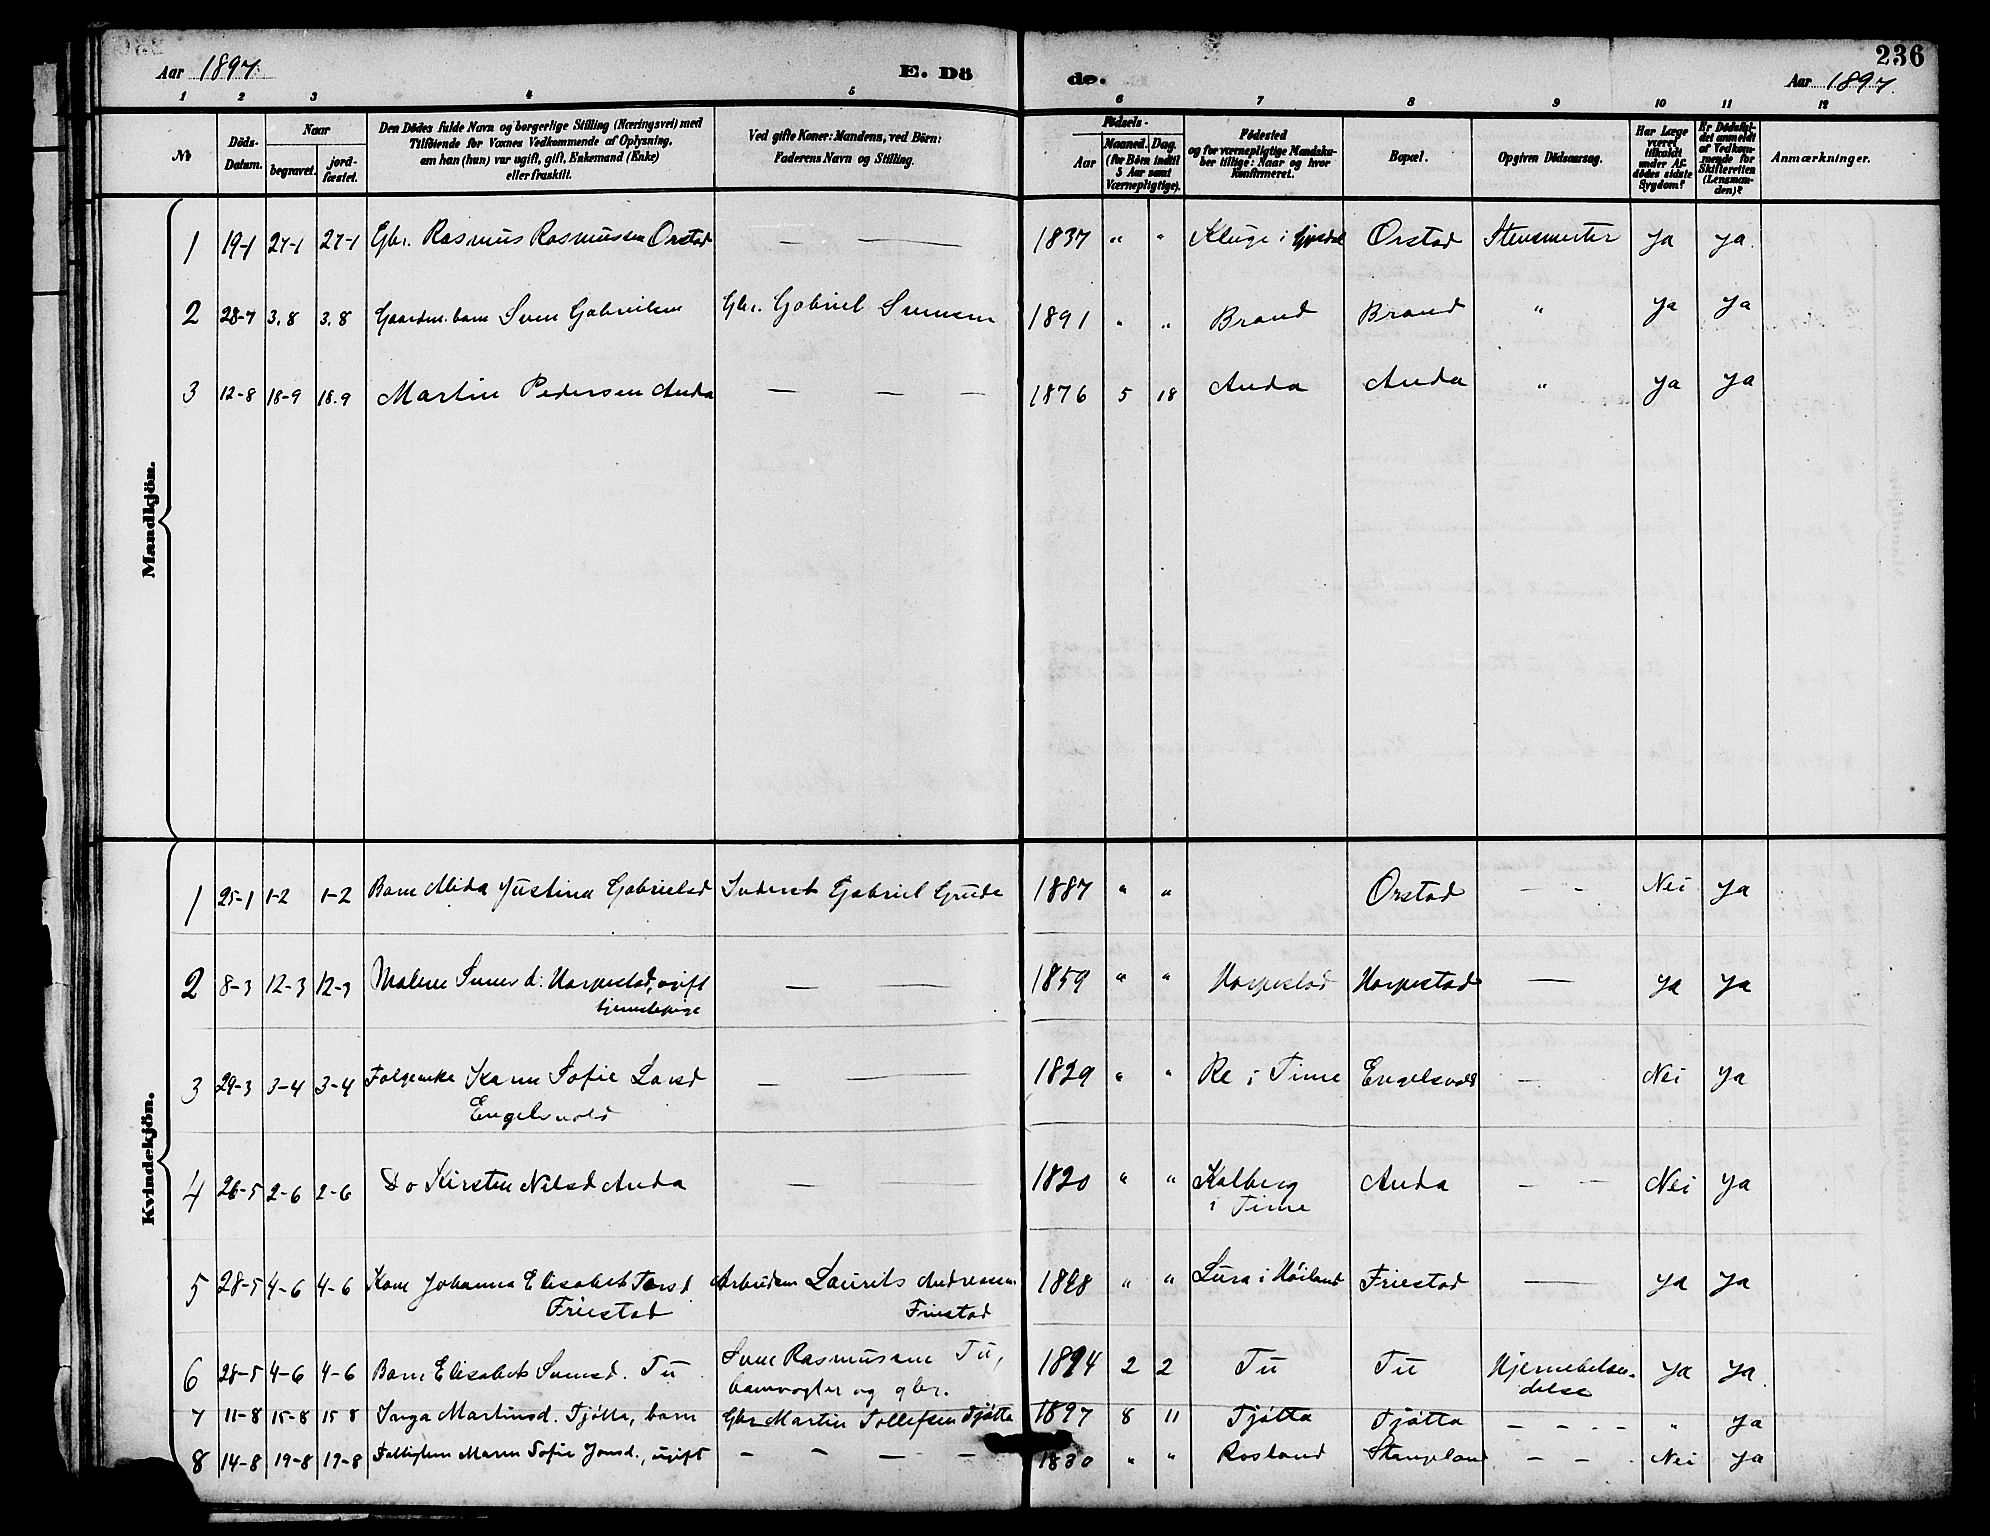 236
Aar 1897. E. Dö de. Aar 1897.
1 2 3 4 5 6 7 8 9 10 11 12
№ Döds-Datum. Naar begravet. jord-fæstet. Den Dödes fulde Navn og borgerlige Stilling (Næringsvei) med Tilföiende for Voxnes Vedkommende af Oplysning, om han (hun) var ugift, gift, Enkemand (Enke) eller fraskilt. Ved gifte Koner: Mandens, ved Börn: Faderens Navn og Stilling. Födsels- Aar Maaned. Dag. (for Börn indtil 5 Aar samt Værnepligtige). Födested og for værnepligtige Mandskaber tillige: Naar og hvor Konfirmeret. Bopæl. Opgiven Dödsaarsag. Har Læge været tilkaldt under Afdödes sidste Sygdom? Er Dödsfaldet anmeldt af Vedkommende for Skifteretten (Lensmanden)? Anmærkninger.
Mandkjön.
1 19-1 27-1 27-1 Gbr. Rasmus Rasmussen Orstad — — 1837 " " Kluge i Gjesdal Orstad Ja Ja.
2 28-7 3.8 3.8 Gaardm. barn Sven Gabrielsen Gbr. Gabriel Svensen 1891 " " Braud Braud " Ja Ja
3 12-8 18-9 18.9 Martin Pedersen Anda — — — 1876 5 18 Anda Anda " Ja Ja
Kvindekjön.
1 25-1 1-2 1-2 Barn Alida Justina Gabrielsd Inderst Gabriel Grude 1887 " " Orstad — - Nei Ja
2 8-3 12-3 12-3 Malene Svens d: Horpestad, ugift — — 1859 " " Horpestad Horpestad — Ja Ja
tjenestepige
3 29-3 3-4 3-4 Folgeenke Karen Sofie Larsd — — 1829 " " Re i Time Engelsvold — Nei Ja
Engelsvold
4 26-5 2-6 2-6 Do Kirsten Nilsd Anda — — 1820 " " Kalberg Anda — — Nei Ja
i Time
5 28-5 4-6 4-6 Kone Johanna Elisabet Torsd Arbeidsm Laurits Andreasen 1828 " " Lura i Höiland Friestad — Ja Ja
Friestad Friestad
6 28-5 4-6 4-6 Barn Elisabet Svensd. Tu Sven Rasmussen Tu, 1894 2 2 Tu Tu Hjernebetæn- Ja Ja.
banevogter og gbr. delse
7 11-8 15-8 15 8 Inga Martinsd. Tjötta, barn Gbr Martin Tollefsen Tjötta 1897 8 11 Tjötta Tjötta — — - - " Ja
8 14-8 19-8 19-8 Fattiglem Maren Sofie Jonsd., ugift — - — — 1830 " " Rosland Stangeland — — Nei Ja